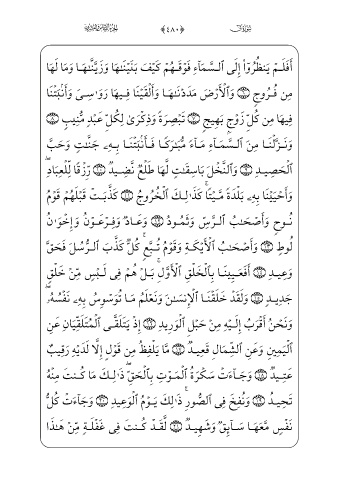 سورة ق (٤٨٠) الجزء السادس والعشرون
أَفَلَمْ يَنظُرُوٓا۟ إِلَى ٱلسَّمَآءِ فَوْقَهُمْ كَيْفَ بَنَيْنَـٰهَا وَزَيَّنَّـٰهَا وَمَا لَهَا
مِن فُرُوجٍ ۝ وَٱلْأَرْضَ مَدَدْنَـٰهَا وَأَلْقَيْنَا فِيهَا رَوَٰسِىَ وَأَنۢبَتْنَا
فِيهَا مِن كُلِّ زَوْجٍۭ بَهِيجٍ ۝ تَبْصِرَةً وَذِكْرَىٰ لِكُلِّ عَبْدٍ مُّنِيبٍ ۝
وَنَزَّلْنَا مِنَ ٱلسَّمَآءِ مَآءً مُّبَـٰرَكًا فَأَنۢبَتْنَا بِهِۦ جَنَّـٰتٍ وَحَبَّ
ٱلْحَصِيدِ ۝ وَٱلنَّخْلَ بَاسِقَـٰتٍ لَّهَا طَلْعٌ نَّضِيدٌ ۝ رِّزْقًا لِّلْعِبَادِ ۖ
وَأَحْيَيْنَا بِهِۦ بَلْدَةً مَّيْتًا ۚ كَذَٰلِكَ ٱلْخُرُوجُ ۝ كَذَّبَتْ قَبْلَهُمْ قَوْمُ
نُوحٍ وَأَصْحَـٰبُ ٱلرَّسِّ وَثَمُودُ ۝ وَعَادٌ وَفِرْعَوْنُ وَإِخْوَٰنُ
لُوطٍ ۝ وَأَصْحَـٰبُ ٱلْأَيْكَةِ وَقَوْمُ تُبَّعٍ ۚ كُلٌّ كَذَّبَ ٱلرُّسُلَ فَحَقَّ
وَعِيدِ ۝ أَفَعَيِينَا بِٱلْخَلْقِ ٱلْأَوَّلِ ۚ بَلْ هُمْ فِى لَبْسٍ مِّنْ خَلْقٍ
جَدِيدٍ ۝ وَلَقَدْ خَلَقْنَا ٱلْإِنسَـٰنَ وَنَعْلَمُ مَا تُوَسْوِسُ بِهِۦ نَفْسُهُۥ ۖ
وَنَحْنُ أَقْرَبُ إِلَيْهِ مِنْ حَبْلِ ٱلْوَرِيدِ ۝ إِذْ يَتَلَقَّى ٱلْمُتَلَقِّيَانِ عَنِ
ٱلْيَمِينِ وَعَنِ ٱلشِّمَالِ قَعِيدٌ ۝ مَّا يَلْفِظُ مِن قَوْلٍ إِلَّا لَدَيْهِ رَقِيبٌ
عَتِيدٌ ۝ وَجَآءَتْ سَكْرَةُ ٱلْمَوْتِ بِٱلْحَقِّ ۖ ذَٰلِكَ مَا كُنتَ مِنْهُ
تَحِيدُ ۝ وَنُفِخَ فِى ٱلصُّورِ ۚ ذَٰلِكَ يَوْمُ ٱلْوَعِيدِ ۝ وَجَآءَتْ كُلُّ
نَفْسٍ مَّعَهَا سَآئِقٌ وَشَهِيدٌ ۝ لَّقَدْ كُنتَ فِى غَفْلَةٍ مِّنْ هَـٰذَا